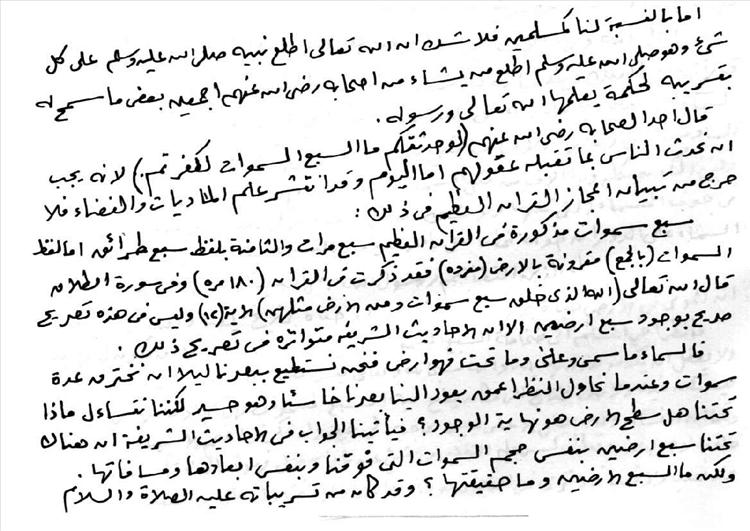 اما بالنسبة لنا كمسلمين فلا شك ان الله تعالى اطلع نبيه صلى الله عليه وسلم على كل
شئ وهو صلى الله عليه وسلم اطلع من يشاء من اصحابه رضى الله عنهم اجمعين بعض ما سمح له
بتسريبه لحكمة يعلمها الله تعالى ورسوله .
قال احد الصحابه رضى الله عنهم (لو حدثتكم ما السبع السموات لكفرتم) لانه يجب
ان نحدث الناس بما تقبله عقولهم اما اليوم وقد انتشر علم الماديات والفضاء فلا
حرج من تبيان اعجاز القرآن العظيم فى ذلك :
سبع سموات مذكورة فى القرآن العظيم سبع مرات والثامنة بلفظ سبع طرائق اما لفظ
السموات (بالجمع) مقرونة بالارض (مفرده) فقد ذكرت فى القرآن (١٨٠ مره) وفى سورة الطلاق
قال الله تعالى (الله الذى خلق سبع سموات ومن الارض مثلهن) الاية (١٢) وليس فى هذه تصريح
صريح بوجود سبع ارضين الا ان الاحاديث الشريفه متواتره فى تصريح ذلك .
فالسماء ما سمى وعلى وما تحت فهو ارض فنحن نستطيع ببصرنا ليلا ان نخترق عدة
سموات وعندما نحاول النظر اعمق يعود الينا بصرنا خاسئا وهو حسير لكننا نتساءل ماذا
تحتنا هل سطح الارض هو نهاية الوجود ؟ فيأتينا الجواب فى الاحاديث الشريفة ان هناك
تحتنا سبع ارضين بنفس حجم السموات التى فوقنا وبنفس ابعادها ومسافاتها .
ولكن ما السبع الارضين وما حقيقتها ؟ وقد كان من تسريباته عليه الصلاة والسلام